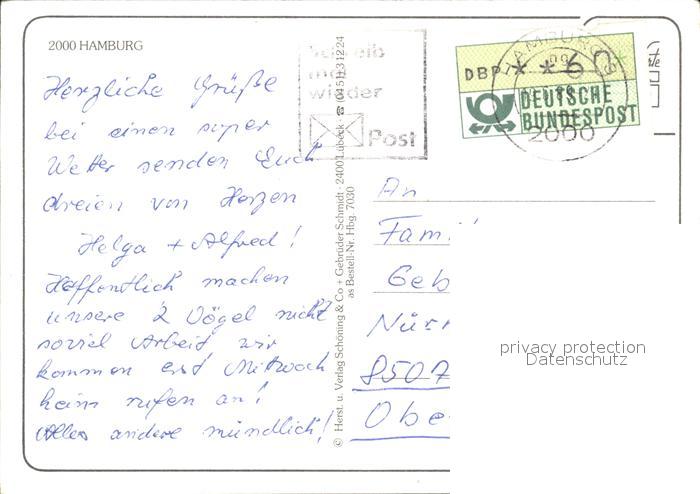 2000 HAMBURG
Schreib
mal
wieder
Post
DBP * * 60
DEUTSCHE
BUNDESPOST
HAMBURG
2000
Herzliche Grüße
bei einen super
Wetter senden Euch
dreien von Herzen
Helga + Alfred!
Hoffentlich machen
unsere 2 Vögel nicht
soviel Arbeit, wir
kommen erst Mittwoch
heim rufen an!
Alles andere mündlich!
© Herst. u. Verlag Schöning & Co + Gebrüder Schmidt · 2400 Lübeck · ☎ (0451) 31224
as Bestell-Nr. Hbg. 7030
An
Fam
Geb
Nür
8507
Obe
privacy protection
Datenschutz